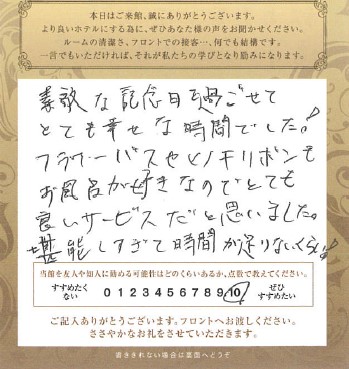 本日はご来館、誠にありがとうございます。
より良いホテルにする為に、ぜひあなた様の声をお聞かせください。
ルームの清潔さ、フロントでの接客…、何でも結構です。
一言でもいただければ、それが私たちの学びとなり励みになります。
素敵な記念日を過ごせて
とても幸せな時間でした!
フラワーバスやヒノキリボンも
お風呂が好きなのでとても
良いサービスだと思いました。
堪能しすぎて時間が足りないくらい!
当館を友人や知人に勧める可能性はどのくらいあるか、点数で教えてください。
すすめたくない 0 1 2 3 4 5 6 7 8 9 10 ぜひすすめたい
ご記入ありがとうございます。フロントへお渡しください。
ささやかなお礼をさせていただきます。
書ききれない場合は裏面へどうぞ